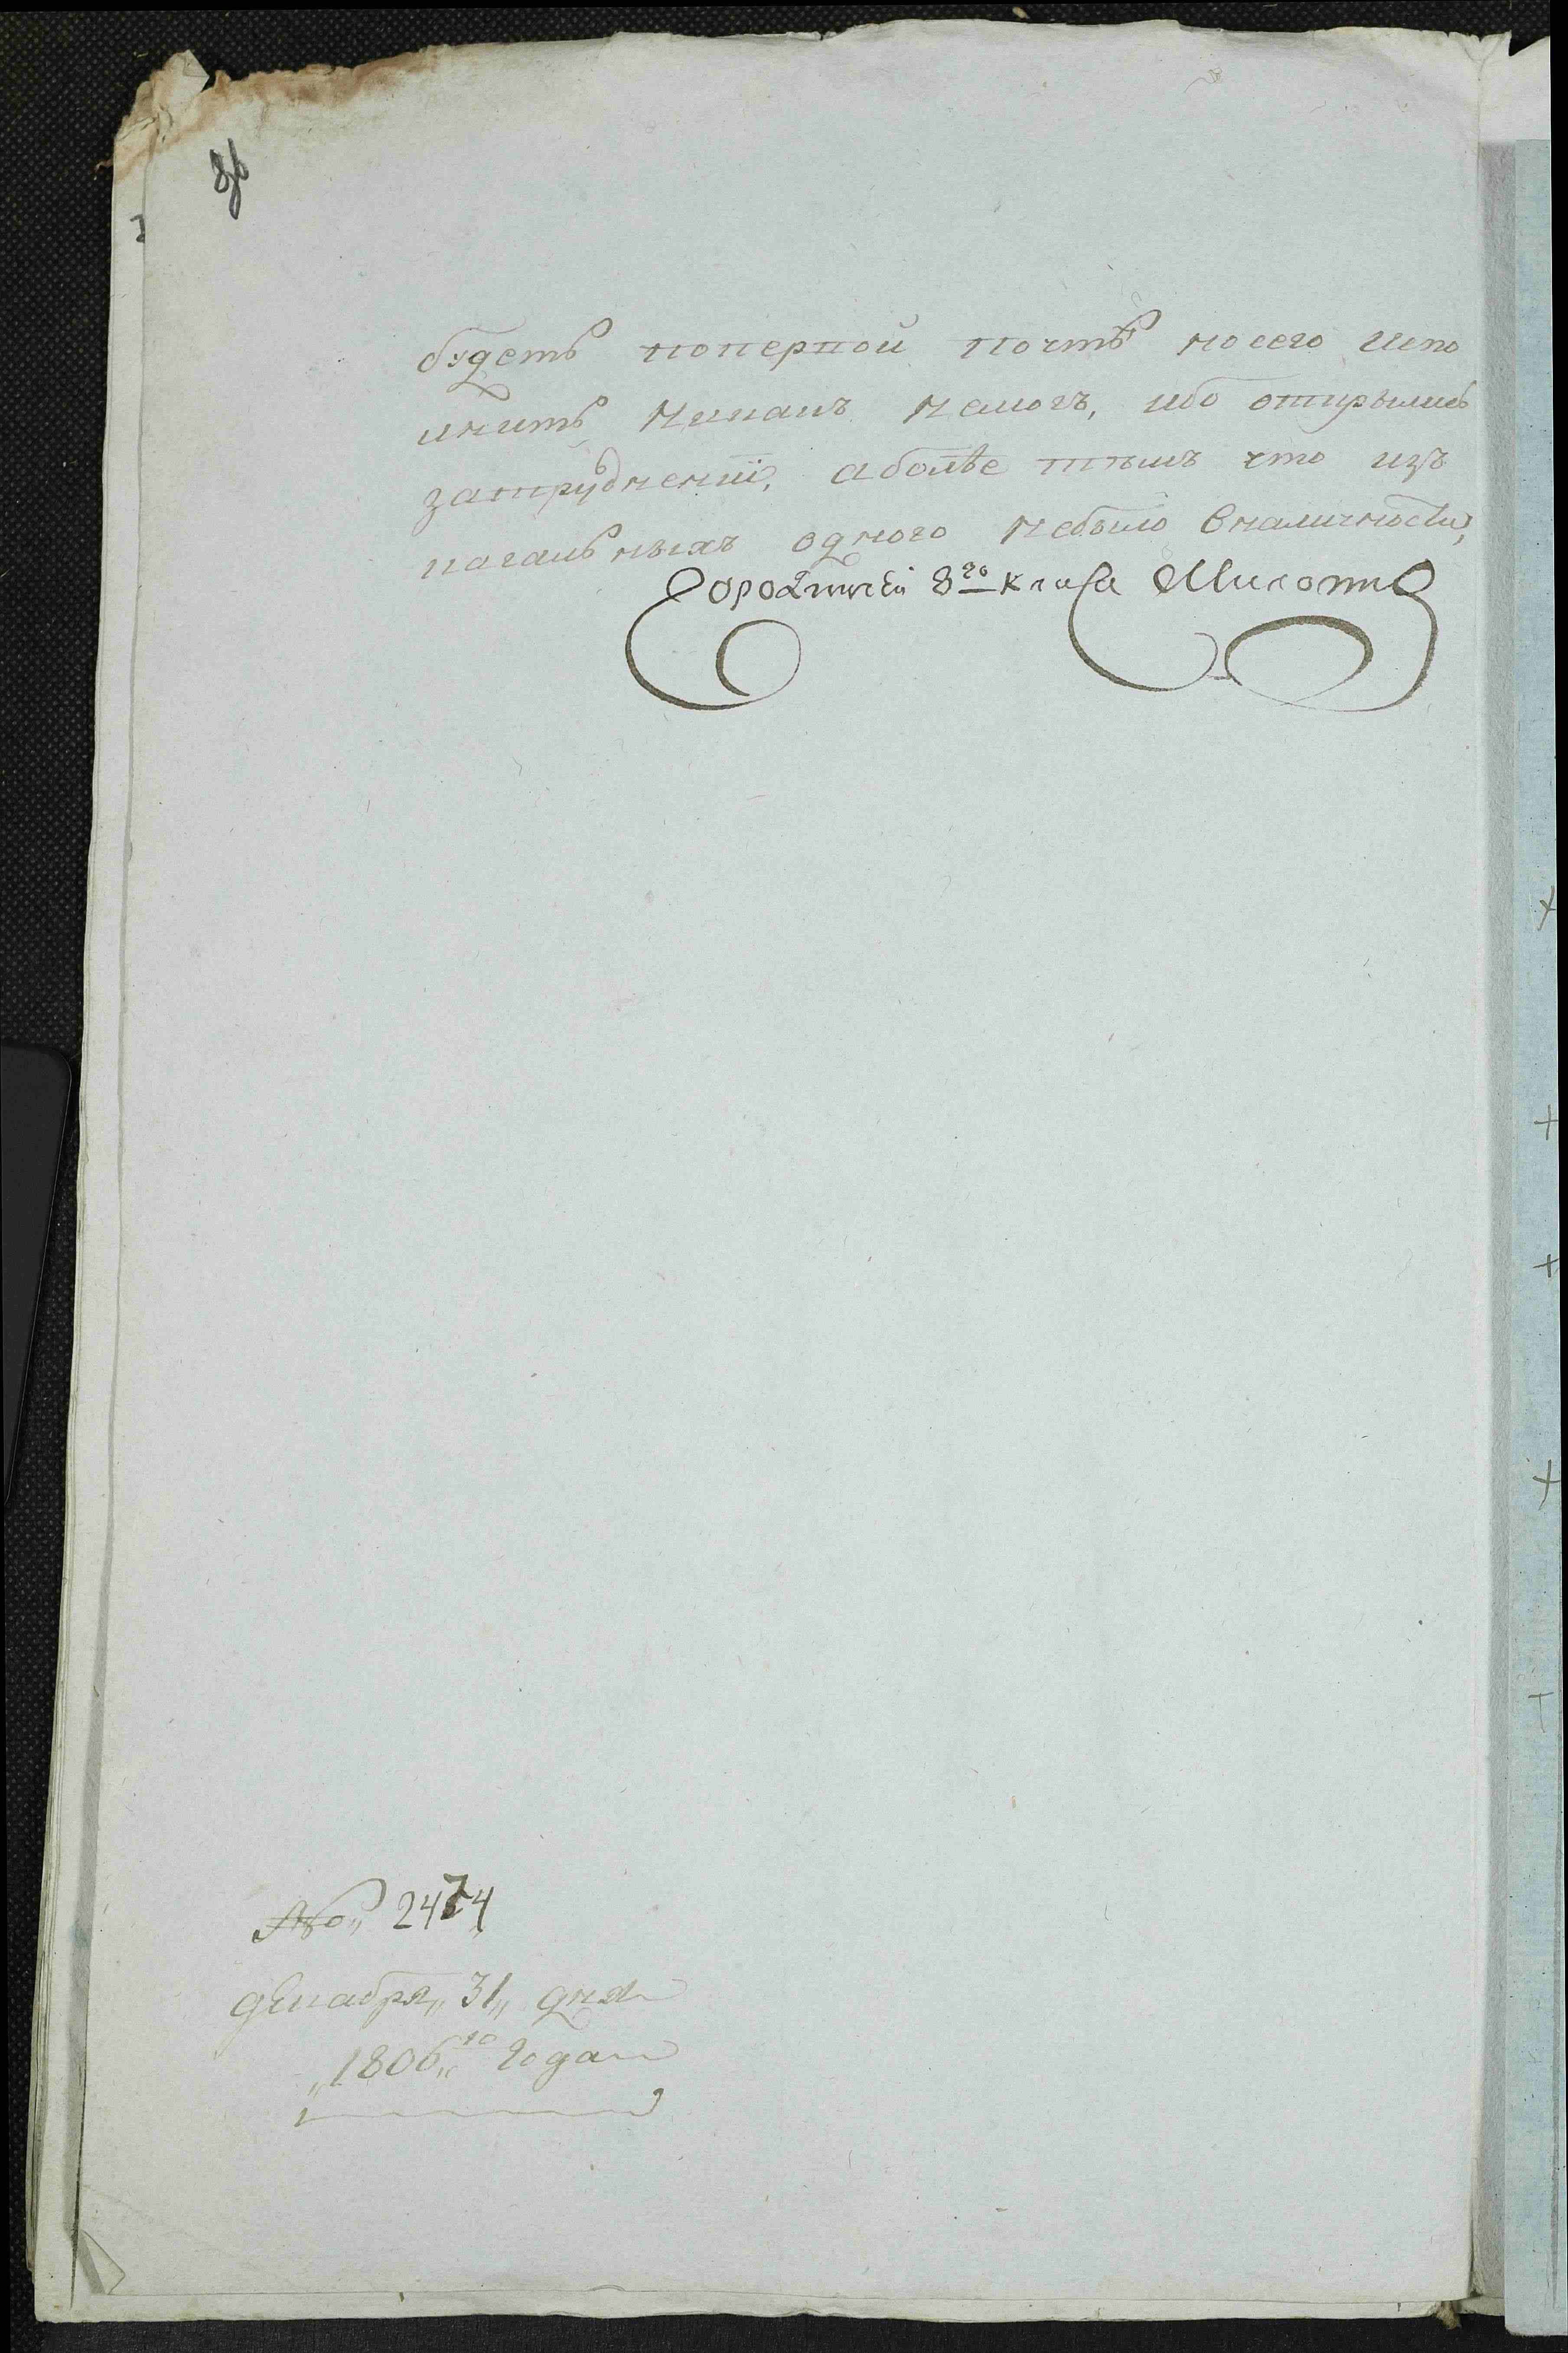 будетъ поперпой почтѣ но сего испо
лнить никакъ немогъ, ибо открылись
затрудненіи, а болѣе тѣмъ что изъ
начальныхъ одного небыло вналичности,
Городничей 8го класа
№ 2474
декабря„ 31„ дня
„1806„го года